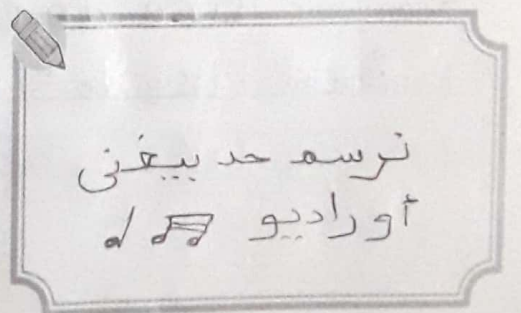 نرسم حد بيغنى
أو راديو